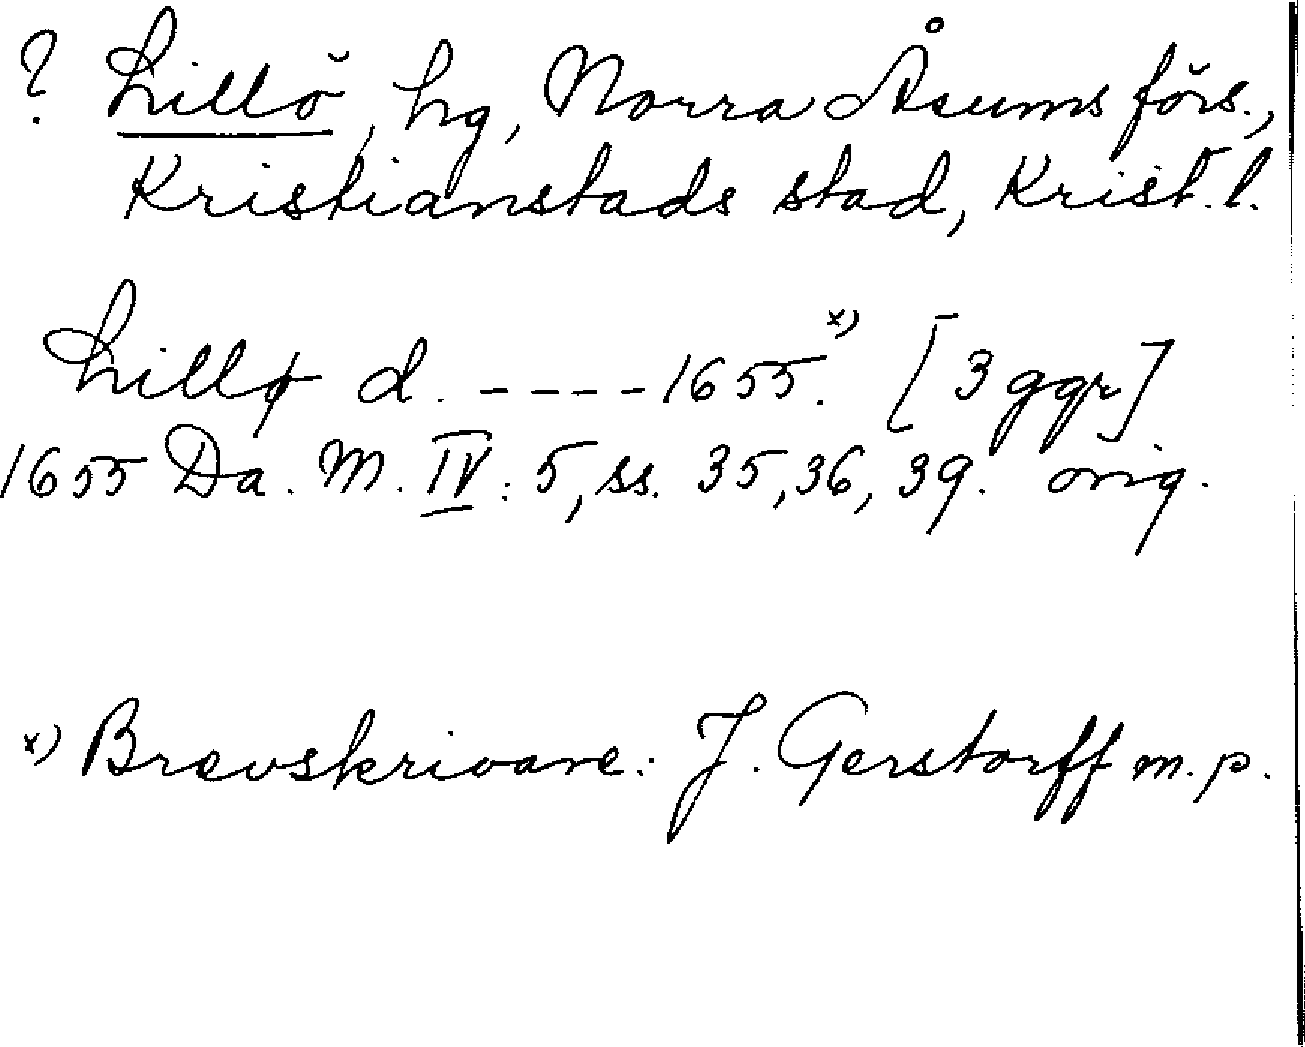 ? Lillö, hg, Norra Åsums förs.,
Kristianstads stad, Krist. l.
Lillø d. ---- 1655.x) [3 ggr]
1655 Da. M. IV: 5, ss. 35, 36, 39. orig.
x) Brevskrivare: J. Gerstorff m. p.